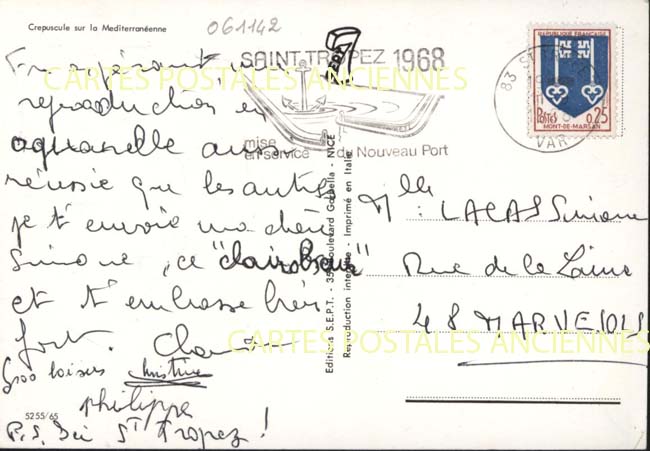 Crepuscule sur la Mediterranéenne
061142
SAINT TROPEZ 1968
mise en service du Nouveau Port
83 S
VAR
REPUBLIQUE FRANÇAISE
POSTES 0,25
MONT-DE-MARSAN
CARTES POSTALES ANCIENNES
reproduction en
aquarelle aussi
réussie que les autres
je t'envoie ma chère
Simone, ce "clair obscur"
et t'embrasse très
fort.
Gros baisers Christine
philippe
P.S. Ici St Tropez !
Editions S.E.P.T. - 35, boulevard Gorbella - NICE
Reproduction interdite - Imprimé en Italie
Mlle : LACAS Simone
Rue de la
48 MARVEJOLS
CARTES POSTALES ANCIENNES
5255/65